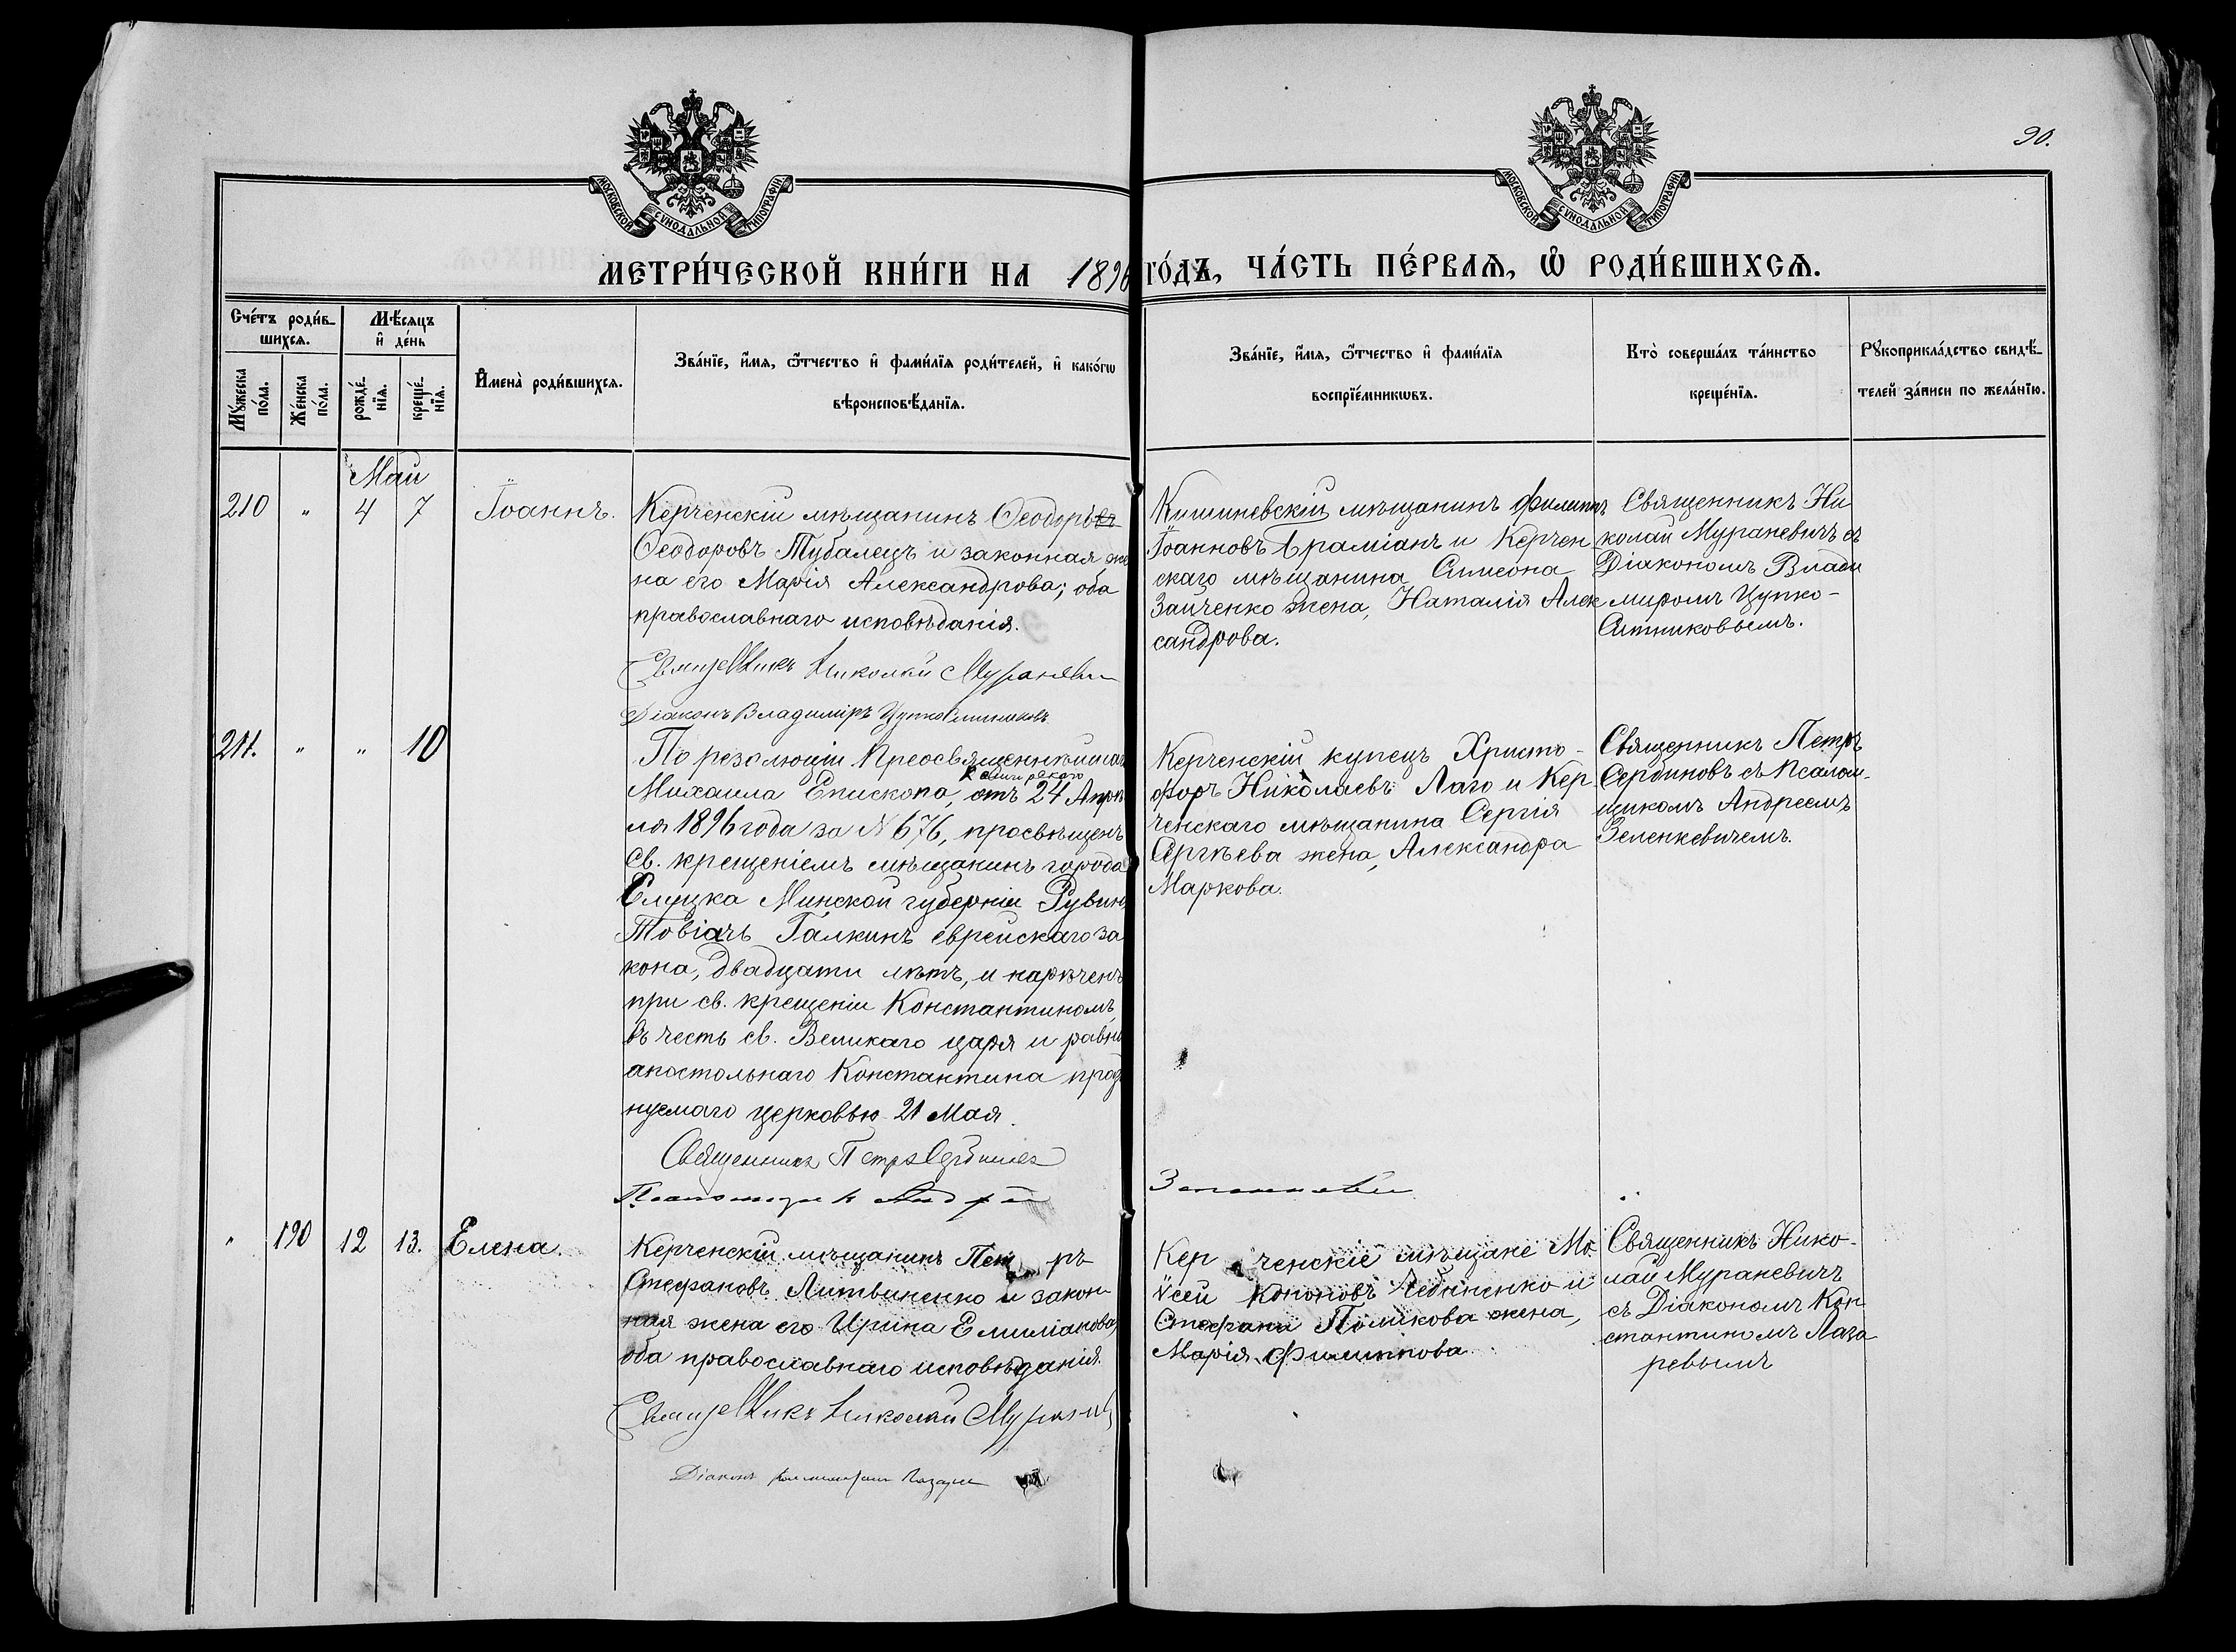 90.
МОСКОВСКОЙ СѴНОДАЛЬНОЙ ТИПОГРАФІИ
МОСКОВСКОЙ СѴНОДАЛЬНОЙ ТИПОГРАФІИ
МЕТРИ́ЧЕСКОЙ КНИ́ГИ НА 1896 ГО́ДЪ, ЧА́СТЬ ПЕ́РВАѦ, Ѡ҆ РОДИ́ВШИХСѦ.
Сче́тъ роди́в-
шихсѧ.
Мꙋ́жеска по́ла.
Же́нска по́ла.
Мѣ́сѧцъ
и҆ де́нь
рожде́-нїѧ.
креще́-нїѧ.
И҆мена̀ роди́вшихсѧ.
Зва́нїе, и҆́мѧ, ѻ҆́тчество и҆ фами́лїѧ роди́телей, и҆ како́гѡ
вѣроисповѣ́данїѧ.
Зва́нїе, и҆́мѧ, ѻ҆́тчество и҆ фами́лїѧ
воспрїе́мникѡвъ.
Кто̀ соверша́лъ та́инство
креще́нїѧ.
Рꙋкоприкла́дство свидѣ́-
телей за́писи по жела́нїю.
Май
210 " 4 7 Іоаннъ.
Керченскій мѣщанинъ Ѳеодоръ
Ѳеодоровъ Тубалецъ и законная же
на его Марія Александрова; оба
православнаго исповѣданія.
Священникъ Николай Мураневич
Діаконъ Владиміръ Цупко-Ситниковъ
Кишиневскій мѣщанинъ Филиппъ
Іоанновъ Араміанъ и Керчен
скаго мѣщанина Симеона
Зайченко жена, Наталія Алек
сандрова.
Священникъ Ни
колай Мураневичъ съ
Діакономъ Влади
миромъ Цупко-
Ситниковымъ.
211. " " 10
По резолюціи Преосвященнѣйшаго
Михаила Епископа, отъ 24 Апрѣ
ля 1896 года за № 676, просвѣщенъ
св. крещеніемъ мѣщанинъ города
Слуцка Минской губерніи Рувин
Товіачъ Галкинъ еврейскаго за
кона, двадцати лѣтъ, и нареченъ
при св. крещеніи Константиномъ,
въ честь св. Великаго царя и равно
апостольнаго Константина празд
нуемаго церковью 21 Мая.
Священникъ Петръ Сербиновъ
Псаломщикъ Андрей Зеленкевич
Керченскій купецъ Христо-
форъ Николаевъ Лаго и Кер
ченскаго мѣщанина Сергія
Сергѣева жена, Александра
Маркова.
Священникъ Петръ
Сербиновъ съ Псалом-
щикомъ Андреемъ
Зеленкевичемъ.
" 190 12 13. Елена.
Керченскій мѣщанинъ Пет ръ
Стефановъ Литвиненко и закон-
ная жена его Ирина Емиліанова,
оба православнаго исповѣданія.
Священникъ Николай Мураневич
Діаконъ Константинъ Лазарев
Кер ченскіе мѣщане Мо-
ѵсей Кононовъ Чебаненко и
Стефана Полякова жена,
Марія Филиппова.
Священникъ Нико-
лай Мураневичъ
съ Діакономъ Кон
стантиномъ Лаза
ревымъ